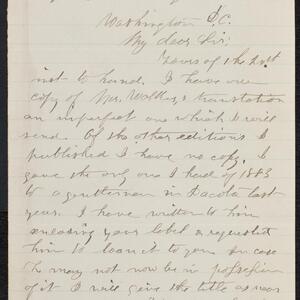 Washington D.C.
My dear Sir:
Yours of the 21st
inst to hand. I have one
copy of Mrs. translation
an imperfect one which I will
send. Of the other editions I
published I have no copy. I
gave the only one I had of 1883
to a gentleman in Dacota last
year. I have written to him
enclosing your label & requested
him to loan it to you. In case
he may not now be in possession
of it I will give the title as near